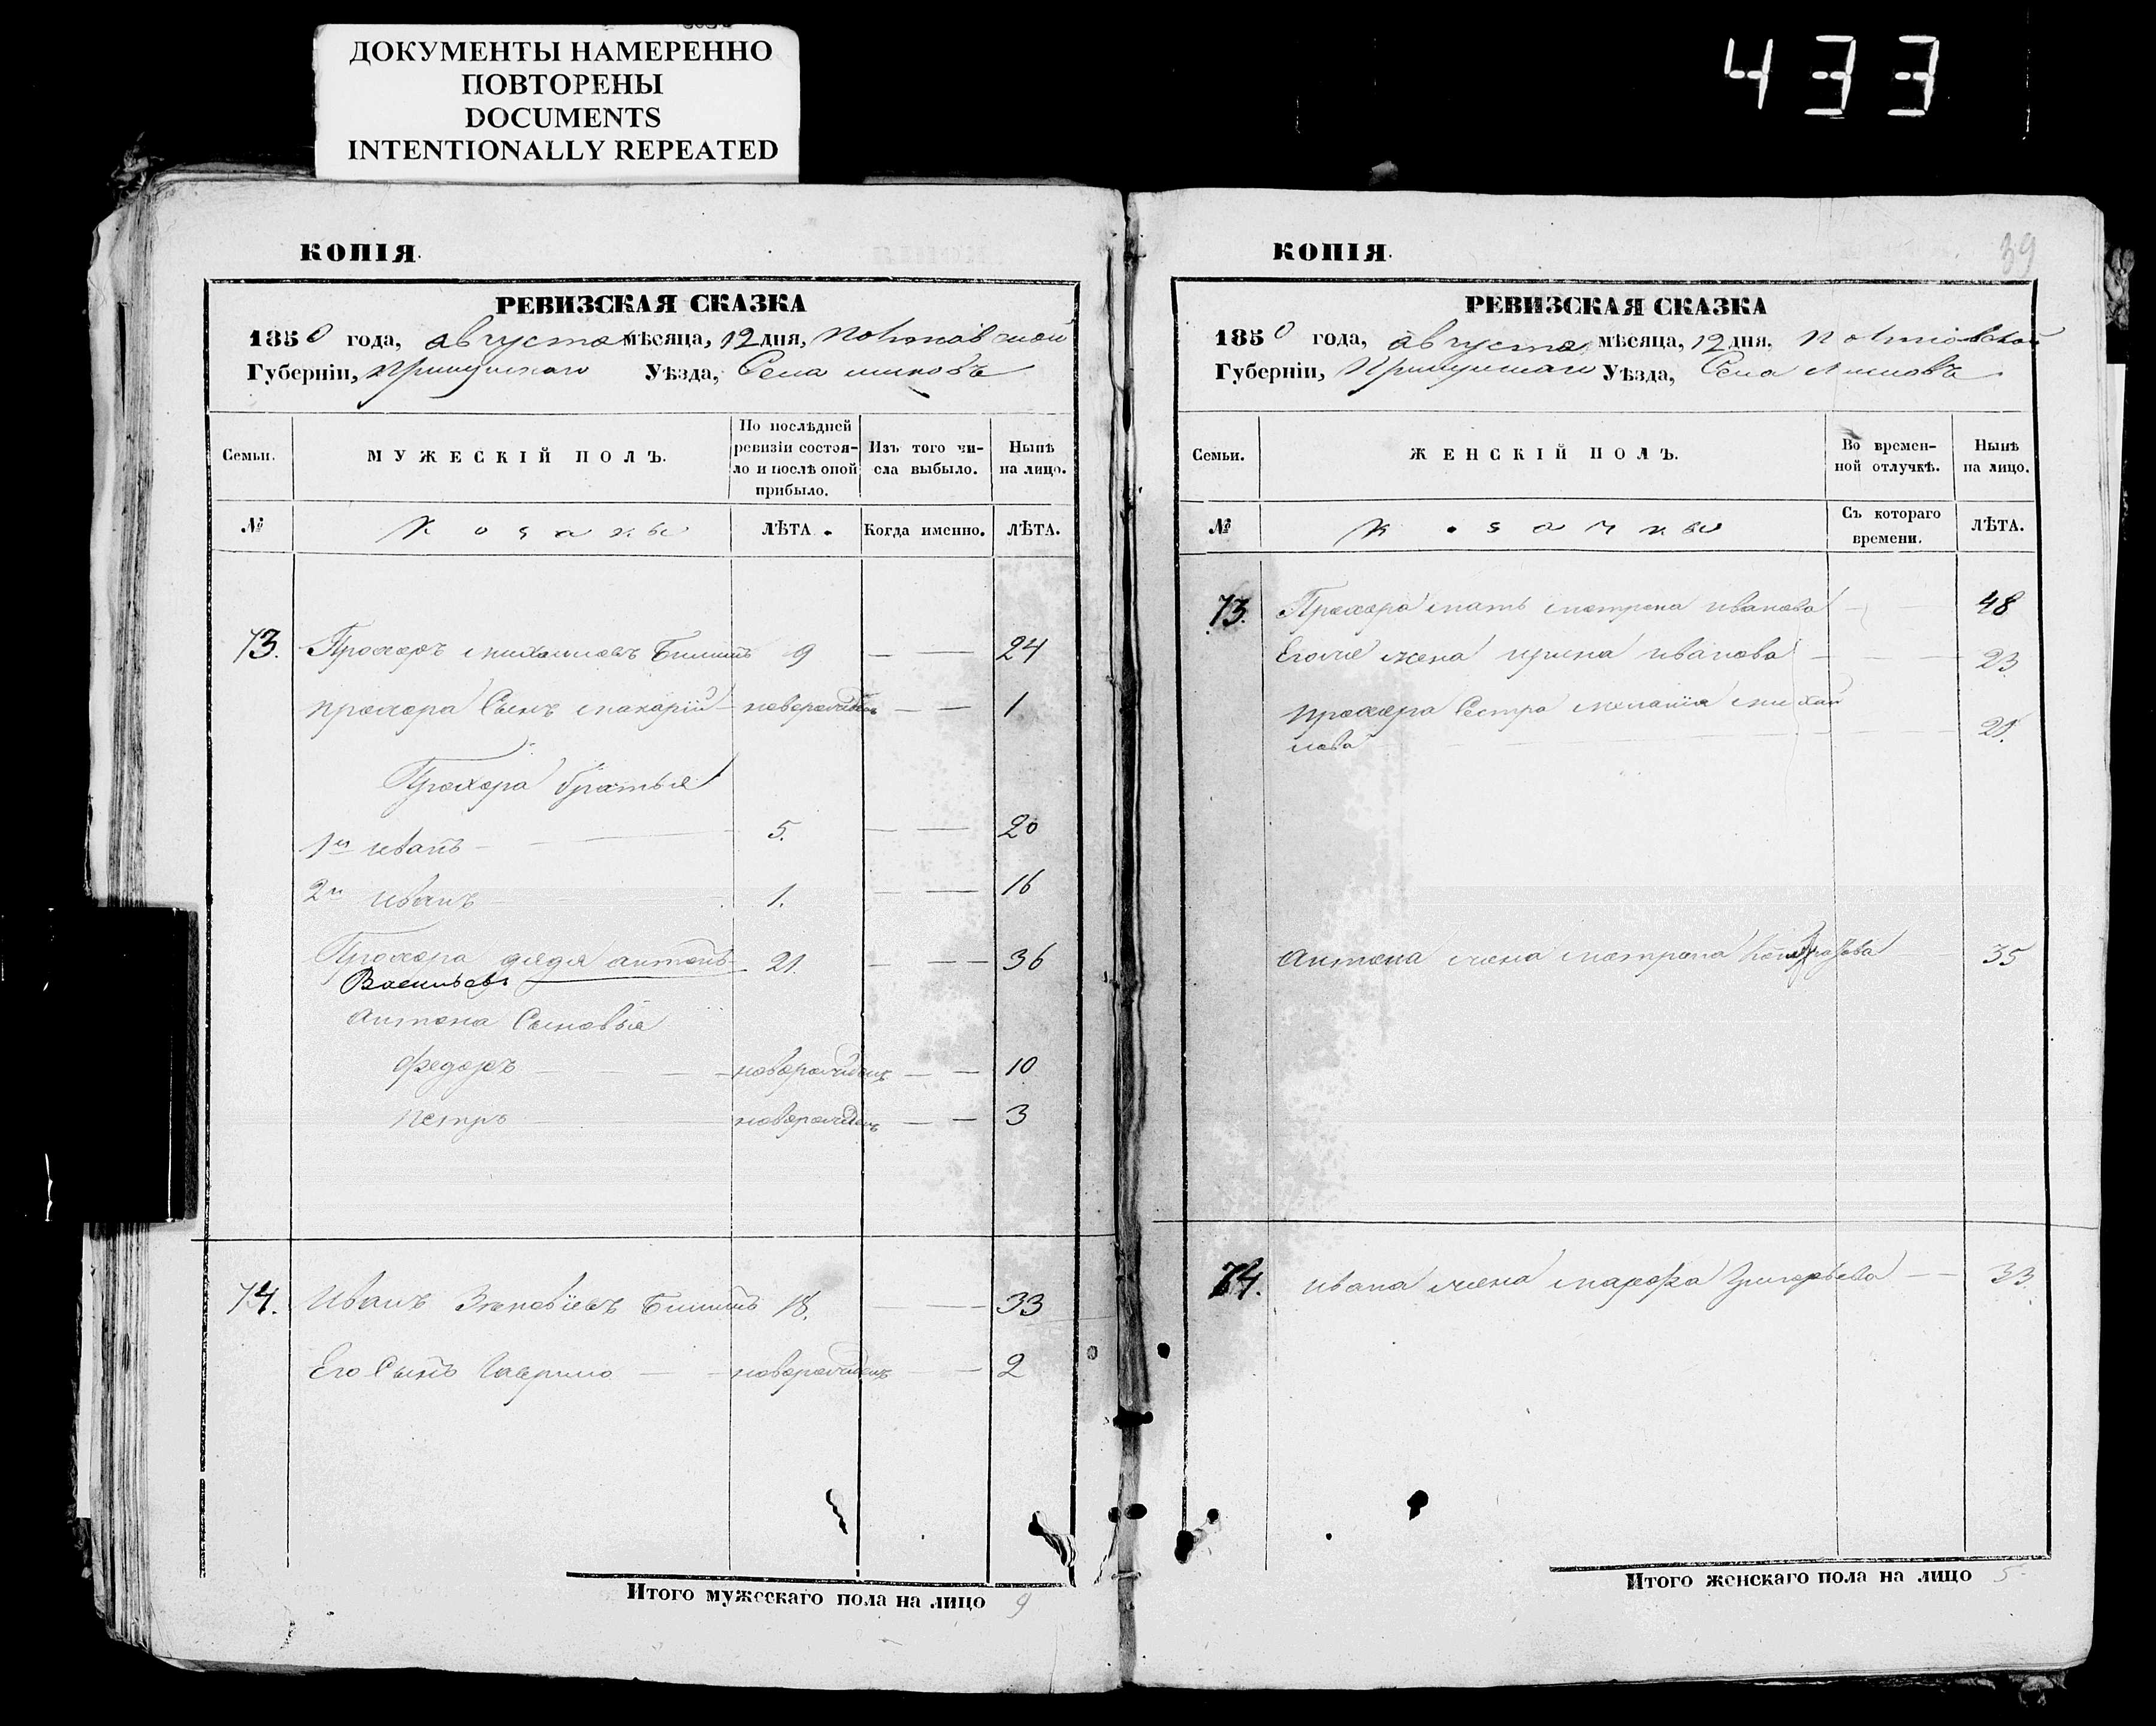 ДОКУМЕНТЫ НАМЕРЕННО
ПОВТОРЕНЫ
DOCUMENTS
INTENTIONALLY REPEATED
433
КОПІЯ.
РЕВИЗСКАЯ СКАЗКА
1850 года, августа мѣсяца, 12 дня, Полтавской
Губерніи, Прилуцкаго Уѣзда, Села
Семьи.
МУЖЕСКІЙ ПОЛЪ.
По послѣдней ревизіи состоя-ло и послѣ оной прибыло.
Изъ того чи-сла выбыло.
Нынѣ на лицо.
№
Козаки
ЛѢТА.
Когда именно.
ЛѢТА.
73. Прохоръ Михайловъ 9 — — 24
Прохора Сынъ Макарій — новорожденъ — — 1
Прохора братья
1й Иванъ — 5. — — 20
2й Иванъ — 1. — — 16
Прохора дядя Антонъ 21. — — 36
Васильевъ
Антона Сыновья
Федоръ — — новорожденъ — — 10
Петръ — новорожденъ — — 3
74. Иванъ Зѣновіевъ 18. — 33
Его Сынъ Гаврило — новорожденъ — 2
Итого мужескаго пола на лицо 9
КОПІЯ.
39
РЕВИЗСКАЯ СКАЗКА
1850 года, августа мѣсяца, 12 дня, Полтавской
Губерніи, Прилуцкаго Уѣзда, Села
Семьи.
ЖЕНСКІЙ ПОЛЪ.
Во времен-ной отлучкѣ.
Нынѣ на лицо.
№
Козачки
Съ котораго времени.
ЛѢТА.
73. Прохора мать Мотрона Иванова — 48
Егоже жена Ирина Иванова — — 23.
Прохора Сестра Меланія Михай
лова — — 21.
Антона жена Мотрона — 35
74. Ивана жена Марфа Григорьева — 33.
Итого женскаго пола на лицо 5